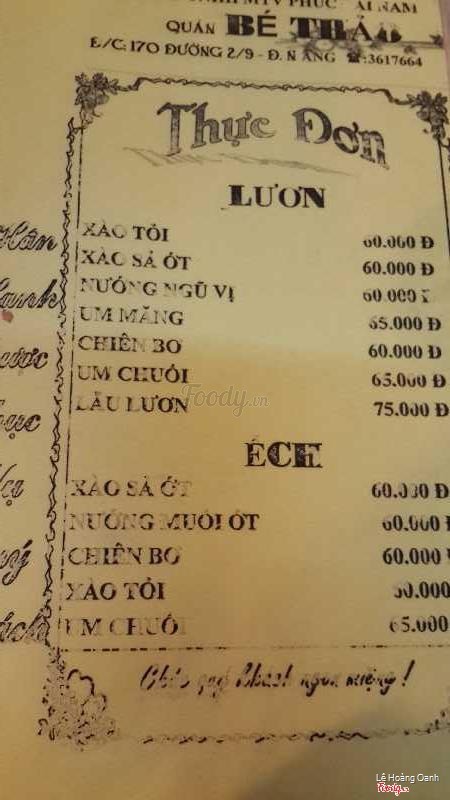 MTV PHÚC ĐẠI NAM
QUÁN BÉ THẢO
Đ/C: 170 ĐƯỜNG 2/9 - Đ. NẴNG ☎:3617664
Thực Đơn
LƯƠN
XÀO TỎI 60.000 Đ
XÀO SẢ ỚT 60.000 Đ
NƯỚNG NGŨ VỊ 60.000 Đ
UM MĂNG 65.000 Đ
CHIÊN BƠ 60.000 Đ
UM CHUỐI 65.000 Đ
LẨU LƯƠN 75.000 Đ
ẾCH
XÀO SẢ ỚT 60.000 Đ
NƯỚNG MUỐI ỚT 60.000 Đ
CHIÊN BƠ 60.000 Đ
XÀO TỎI 60.000
UM CHUỐI 65.000
Chúc quý khách ngon miệng !
Hân
hạnh
được
phục
vụ
quý
khách
Foody.vn
Lê Hoàng Oanh
Foody.vn